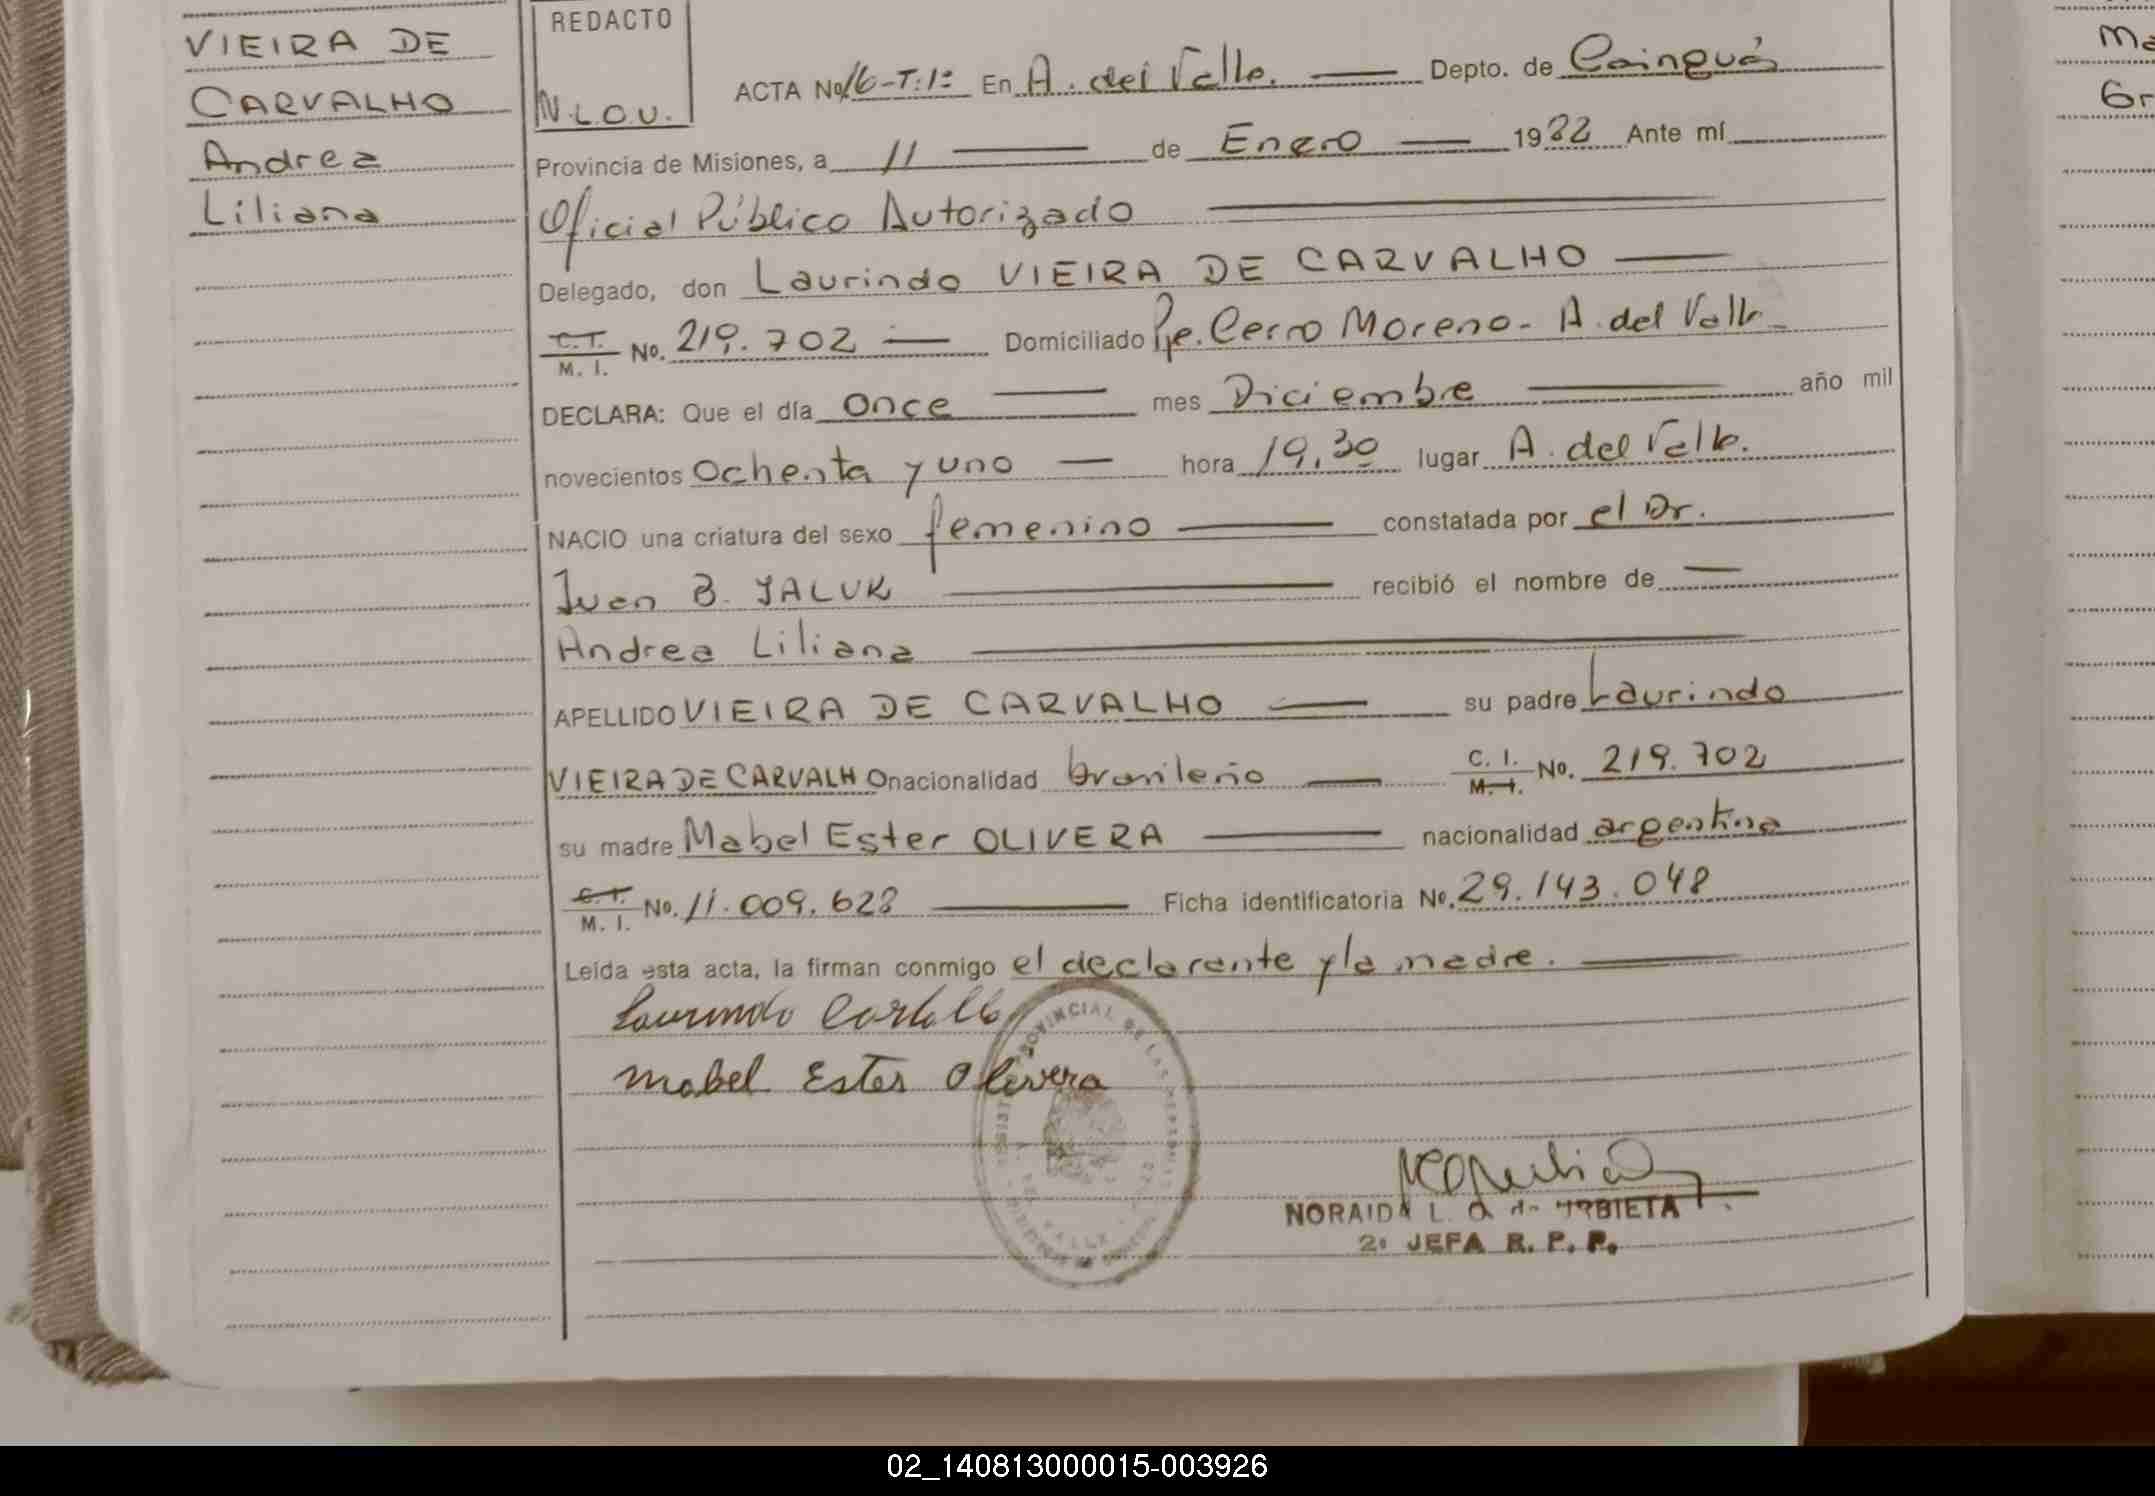 VIEIRA DE
CARVALHO
Andrea
Liliana
REDACTO
N.L.O.U.
ACTA No. 16-T:1º En A. del Valle. Depto. de Cainguás
Provincia de Misiones, a 11 de Enero 1982 Ante mí
Oficial Público Autorizado
Delegado, don Laurindo VIEIRA DE CARVALHO
C.I. M. I. No. 219.702 Domiciliado Pje. Cerro Moreno - A. del Valle
DECLARA: Que el día once mes Diciembre año mil
novecientos ochenta y uno hora 19,30 lugar A. del Valle.
NACIO una criatura del sexo femenino constatada por el Dr.
Juan B. JALUK recibió el nombre de
Andrea Liliana
APELLIDO VIEIRA DE CARVALHO su padre Laurindo
VIEIRA DE CARVALHO nacionalidad brasileño C. I. M. I. No. 219.702
su madre Mabel Ester OLIVERA nacionalidad argentina
C. I. M. I. No. 11.009.628 Ficha identificatoria No. 29.143.048
Leída esta acta, la firman conmigo el declarante y la madre.
Laurindo
Mabel Ester Olivera
PROVINCIAL DE LAS
NORAIDA L. O. de URBIETA
2ª JEFA R. P. P.
Ma
Gr
02_140813000015-003926